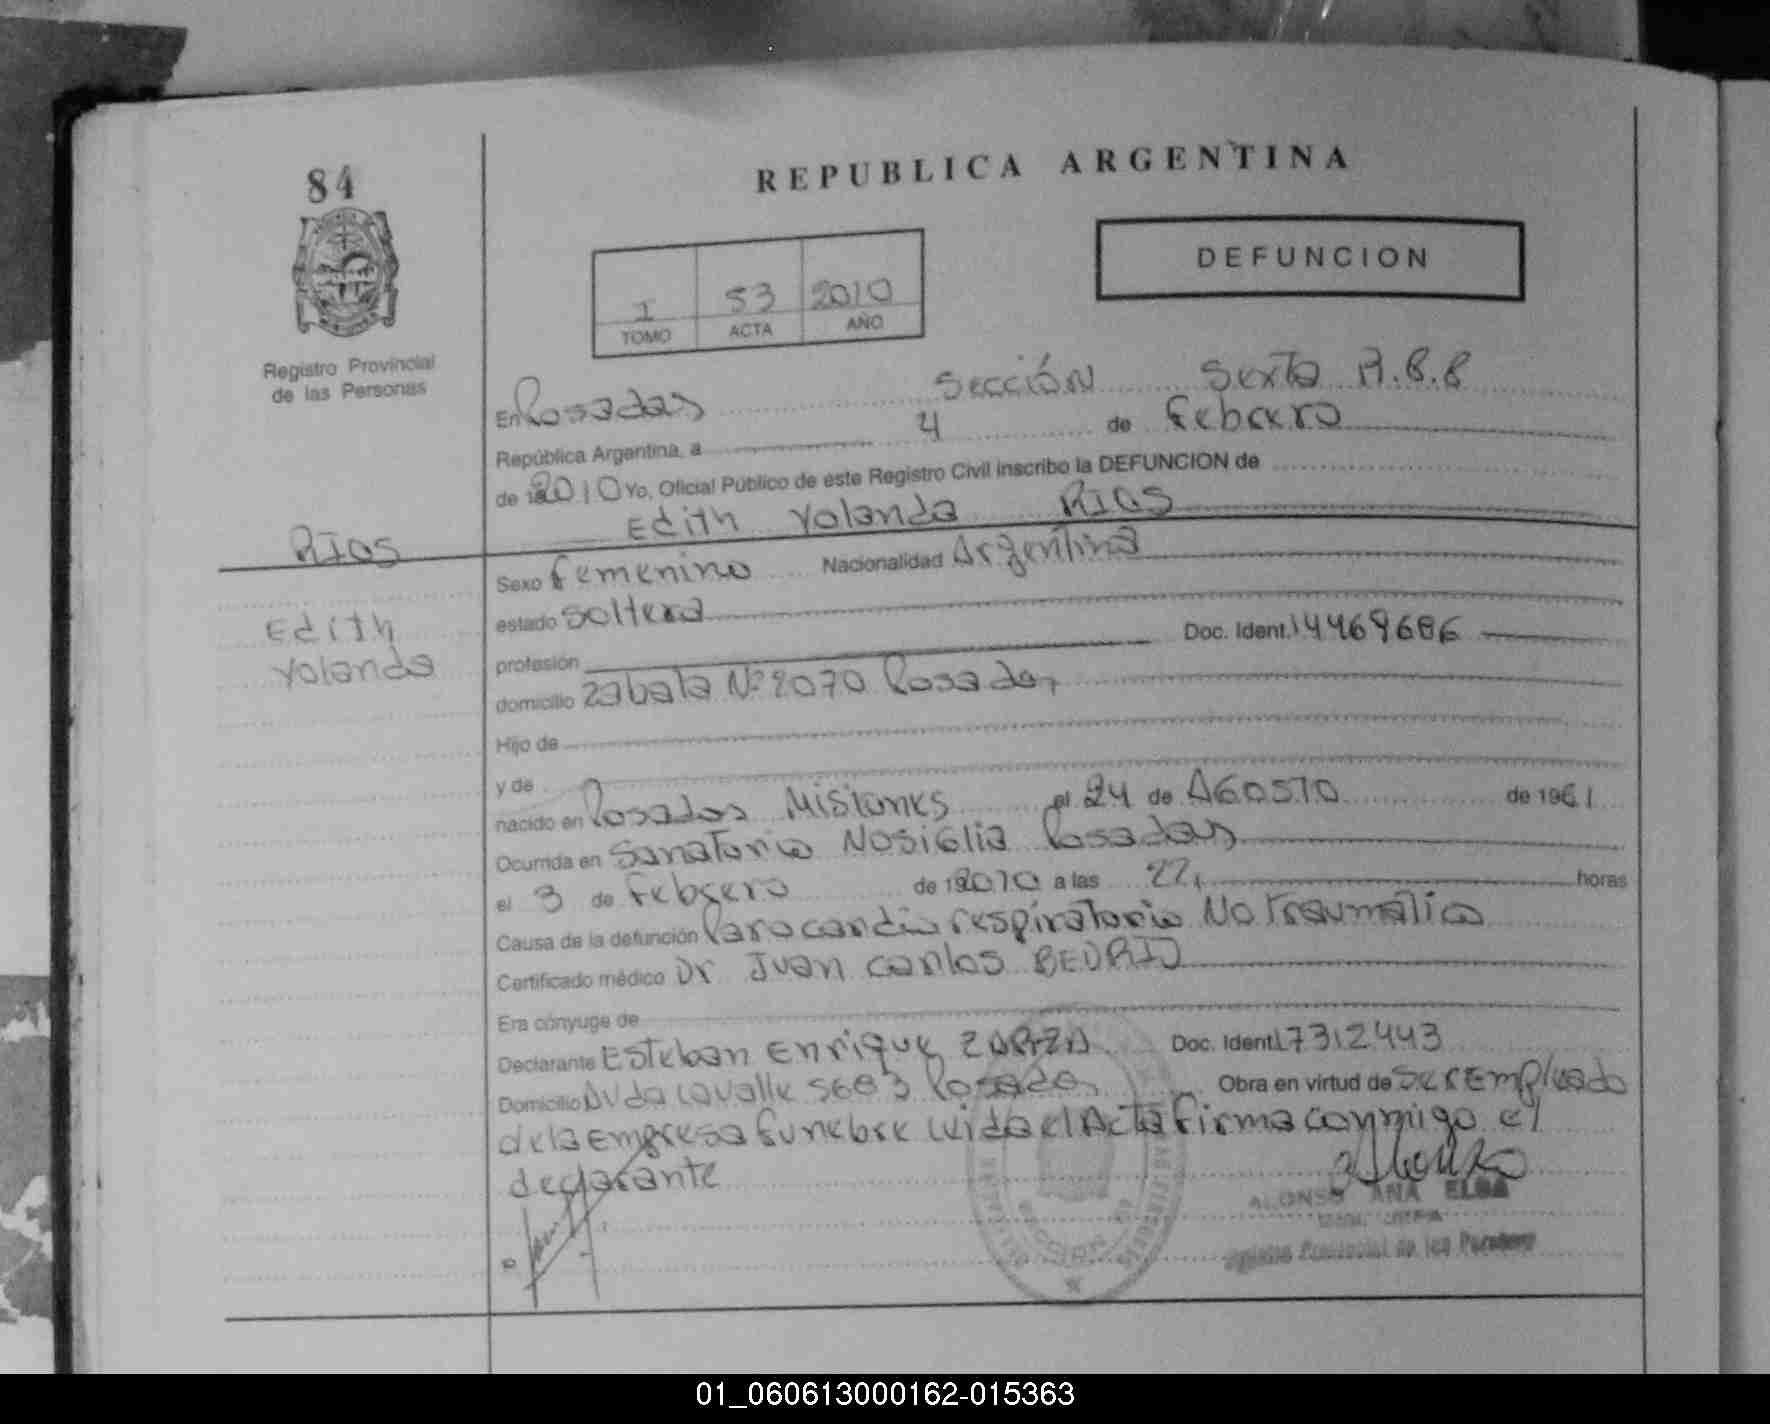 84
REPUBLICA ARGENTINA
DEFUNCION
I 53 2010
TOMO ACTA AÑO
Registro Provincial
de las Personas
En Posadas Sección Sexta A.B.B
República Argentina, a 4 de Febrero
de 2010 Yo, Oficial Público de este Registro Civil inscribo la DEFUNCION de
Edith Yolanda RIOS
RIOS
Edith
Yolanda
Sexo Femenino Nacionalidad Argentina
estado Soltera
profesión Doc. Ident. 14469686
domicilio Zabala Nº 2070 Posadas
Hijo de
y de
nacido en Posadas Misiones el 24 de AGOSTO de 1961
Ocurrida en Sanatorio Nosiglia Posadas
el 3 de Febrero de 2010 a las 22, horas
Causa de la defunción Paro cardio respiratorio No Traumatico
Certificado médico Dr Juan Carlos BEDRIJ
Era cónyuge de
Declarante Esteban Enrique ZARZA Doc. Ident. 17312443
Domicilio Avda Lavalle 5683 Posadas Obra en virtud de ser Empleado
de la Empresa funebre leida el Acta firma conmigo el
declarante
ALONSO ANA ELBA
Registro Provincial de las Personas
01_060613000162-015363